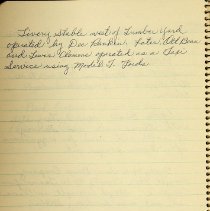 Livery stable west of Lumber Yard
operated by Dee Later Old Bean
and Lewis Clemens operated as a Taxi
Service using Model T. Fords